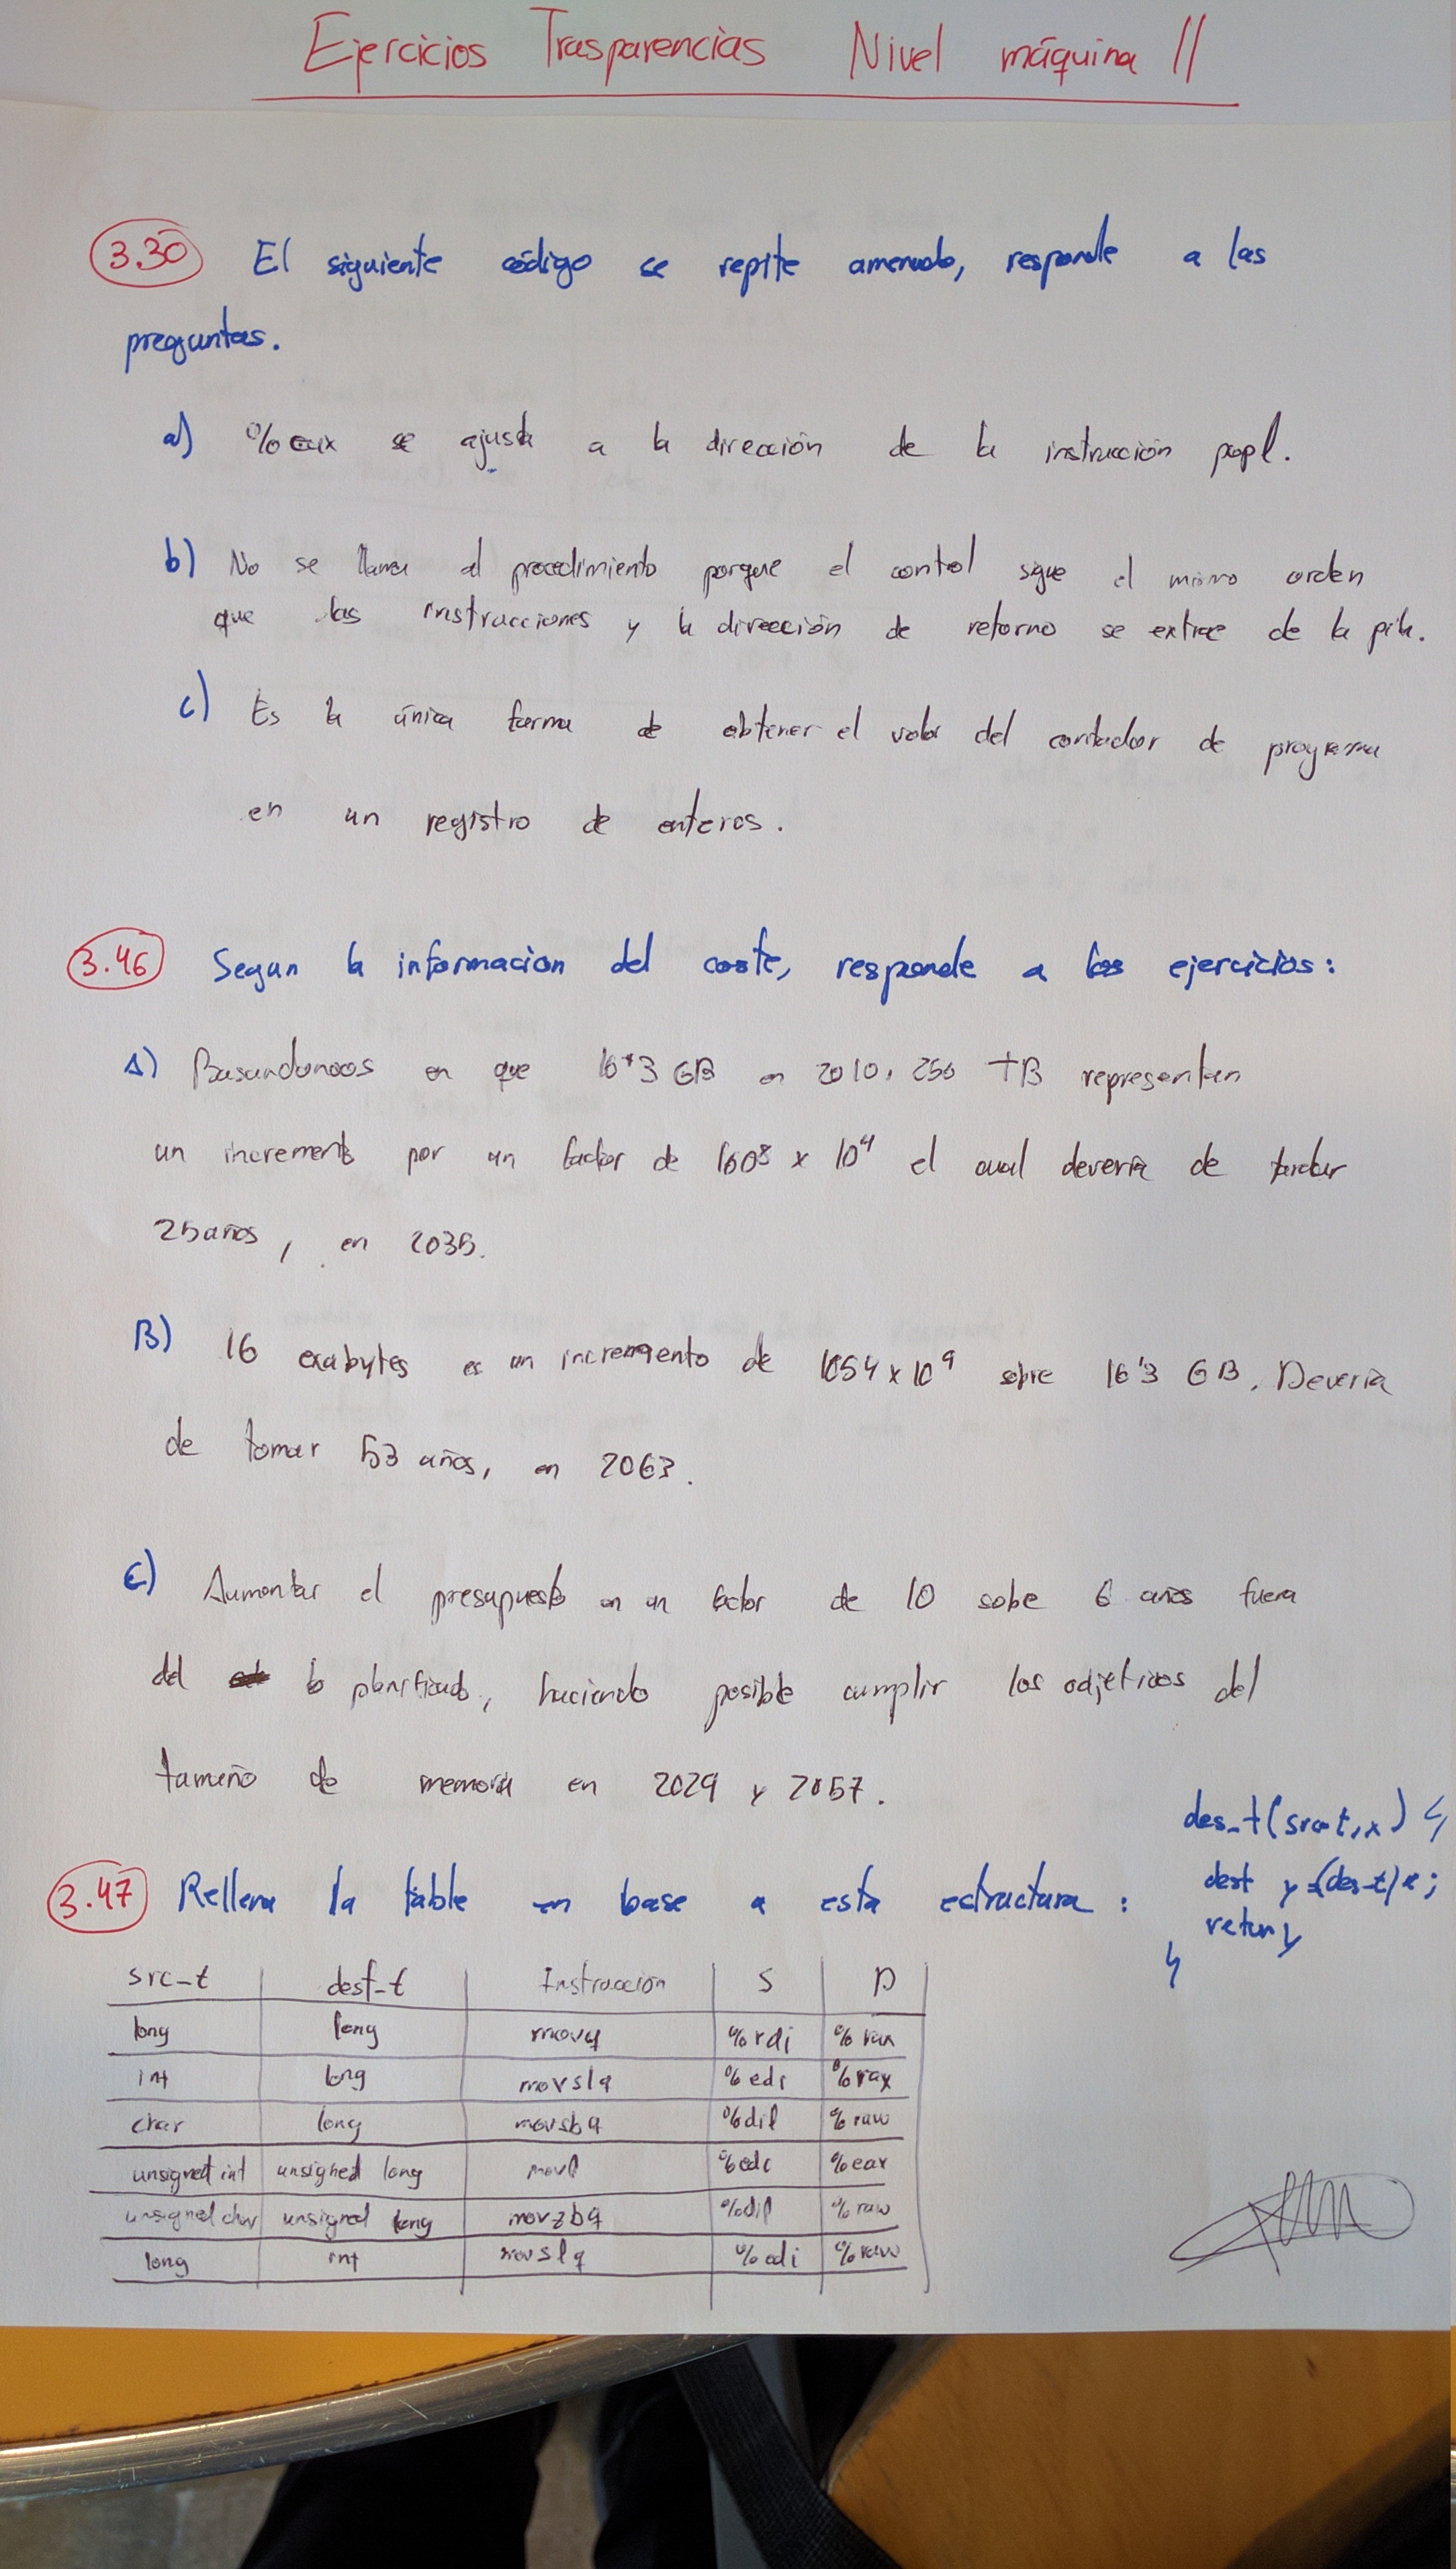 Ejercicios Trasparencias Nivel máquina II
3.30 El siguiente código se repite amenudo, responde a las
preguntas.
a) %eax se ajusta a la dirección de la instrucción popl.
b) No se llama al procedimiento porque el control sigue el mismo orden
que las instrucciones y la dirección de retorno se extrae de la pila.
c) Es la única forma de obtener el valor del contador de programa
en un registro de enteros.
3.46 Segun la informacion del coste, responde a los ejercicios:
A) Basandonoos en que 16'3 GB en 2010, 256 TB representan
un incremento por un factor de 1608 x 10⁴ el cual devería de tardar
25 años, en 2035.
B) 16 exabytes es un incremento de 1054 x 10⁹ sobre 16'3 GB. Devería
de tomar 53 años, en 2063.
C) Aumentar el presupuesto en un factor de 10 sobe 6 años fuera
del lo planificado, haciendo posible cumplir los odjetivos del
tameño de memoria en 2029 y 2057.
des_t(src_t,x) {
dest y=(des_t)x;
retun y
}
3.47 Rellena la table en base a esta estructura:
src_t dest_t Instrucción S D
long long movq %rdi %rax
int long movslq %edi %rax
char long movsbq %dil %rax
unsigned int unsighed long movl %edi %eax
unsigned char unsigned long movzbq %dil %rax
long int movslq %edi %rax